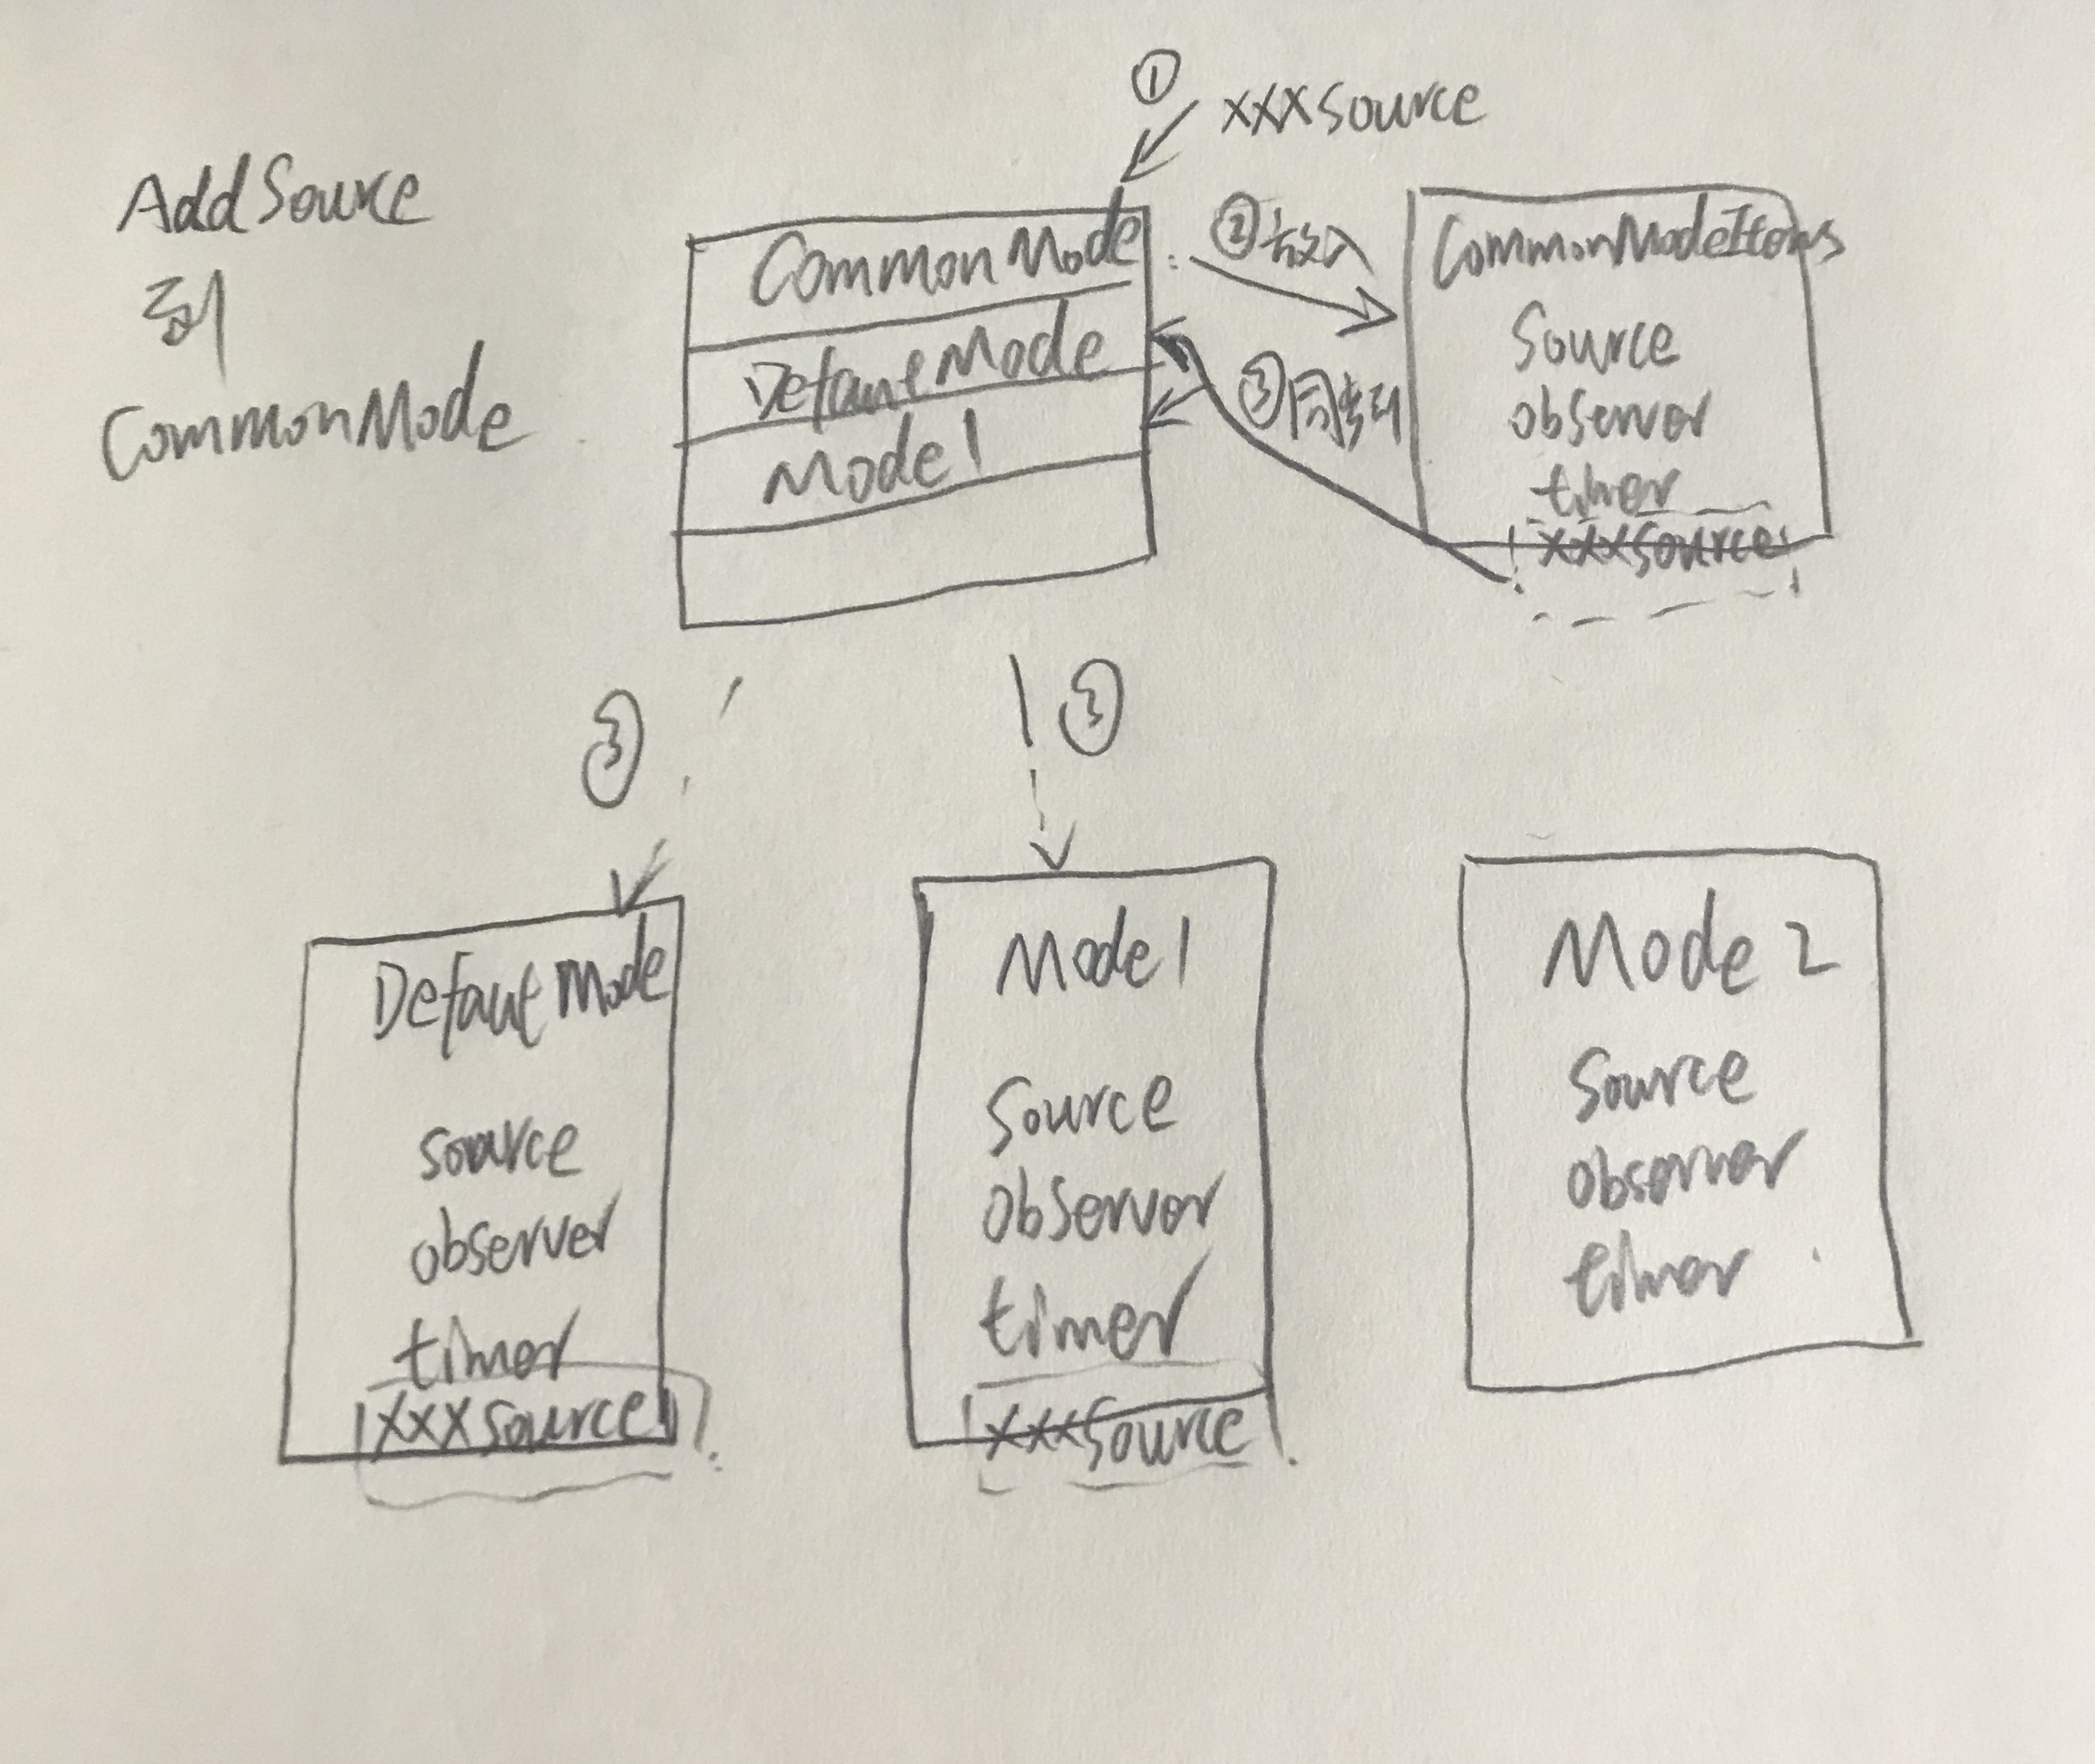 AddSource
到
CommonMode
①
xxxSource
CommonMode
DefautMode
Mode1
②放入
③同步到
CommonModeItems
Source
observer
timer
xxxSource
③
③
Defaut Mode
source
observer
timer
xxxsource
Mode1
Source
observer
timer
xxxSource
Mode2
Source
observer
timer